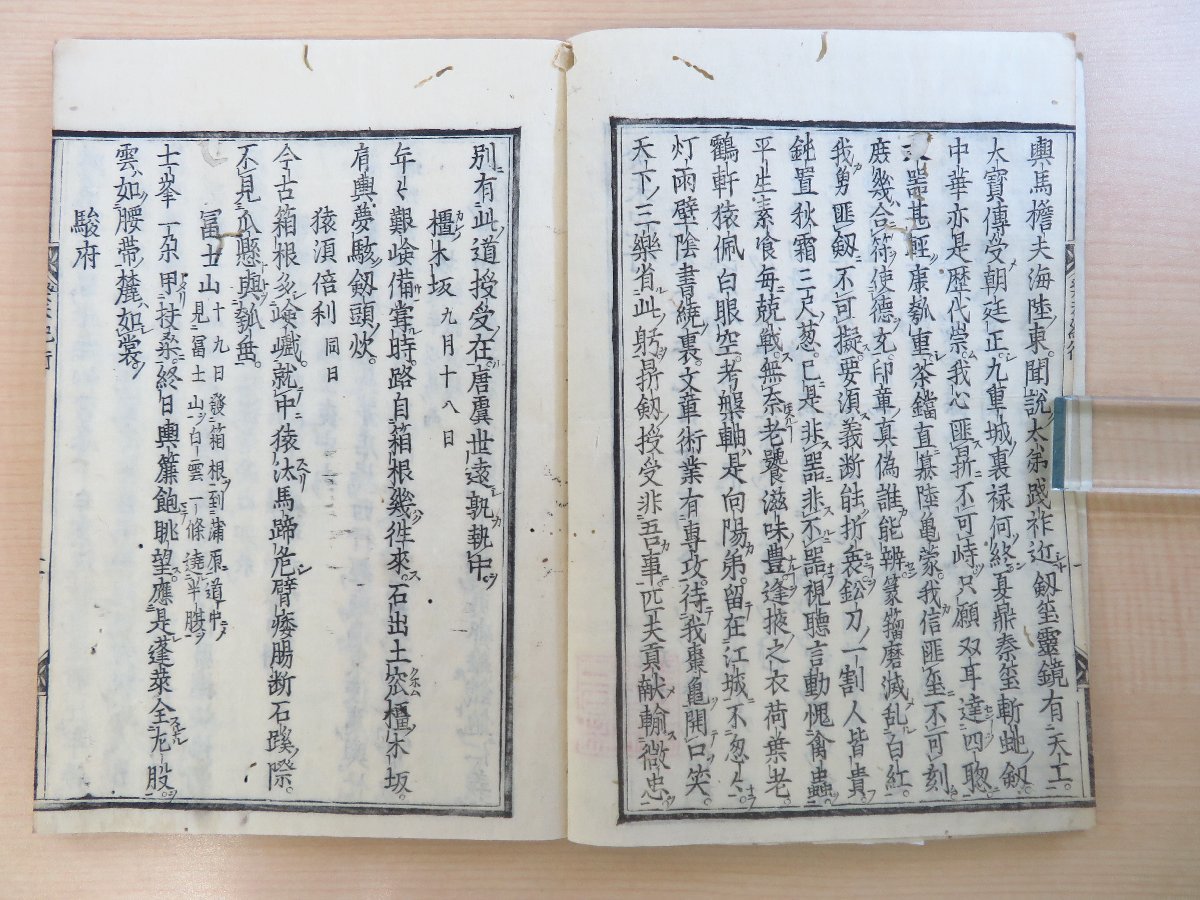 輿馬檐夫海陸東聞說太弟践祚近劔笙靈鏡有天工
大寶傳受朝廷正九重城裏禄何終夏鼎秦笙斬虵劔
中華亦是歷代崇我心匪鼎不可峙只願双耳達四聰
大器甚輕康瓠重茶鐺直慕陸亀蒙我信匪笙不可刻
庶幾合符使德充印章真偽誰能辨篆籀磨滅乱白紅
我勇匪劔不可擬要須義断能折衷鉛刀一割人皆貴
鈍置秋霜三尺葱已是非器非不器視聽言動愧禽蟲
平生素飡每兢戦無奈老饕滋味豊逢掖之衣荷葉老
鶴軒猿佩白眼空考槃軸是向陽弟留在江城不忽々
灯雨壁陰書繞裏文章術業有專攻待我棗亀開口笑
天下三樂省此躬昇劔授受非吾事匹夫貢献輸微忠
別有此道授受在唐虞世遠孰執中
橿木坂 九月十八日
年々艱嶮備嘗時路自箱根幾徃來石出土窊橿木坂
肩輿夢駭劔頭炊
猿湏倍利 同日
今古箱根多嶮巇就中猿汰馬蹄危臂痿腸断石蹊際
不見瓜懸輿瓠垂
冨士山 十九日發箱根到蒲原道中
見冨士山白雲一條遶半腹
士峯一朶甲扶桑終日輿簾飽眺望應是蓬萊全左股
雲如腰帶麓如裳
駿府